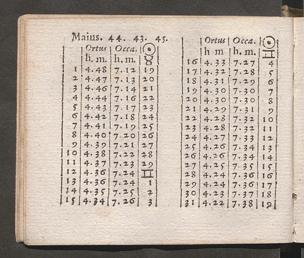 Maius. 44. 43. 45.
Ortus Occa. ☉
h. m. h. m. ♉
1 4.48 7.12 19
2 4.47 7.13 20
3 4.46 7.14 21
4 4.44 7.16 22
5 4.43 7.17 23
6 4.42 7.18 24
7 4.41 7.19 25
8 4.40 7.20 26
9 4.39 7.21 27
10 4.38 7.22 28
11 4.37 7.23 29
12 4.36 7.24 ♊
13 4.36 7.24 1
14 4.35 7.25 2
15 4.34 7.26 3
Ortus Occa. ☉
h m h. m. ♊
16 4.33 7.27 4
17 4.32 7.28 5
18 4.31 7.29 6
19 4.30 7.30 7
20 4.30 7.30 8
21 4.29 7.31 9
22 4.28 7.32 10
23 4.28 7.32 11
24 4.27 7.33 12
25 4.26 7.34 13
26 4.26 7.34 14
27 4.25 7.35 15
28 4.24 7.36 16
29 4.24 7.36 17
30 4.23 7.37 18
31 4.22 7.38 19